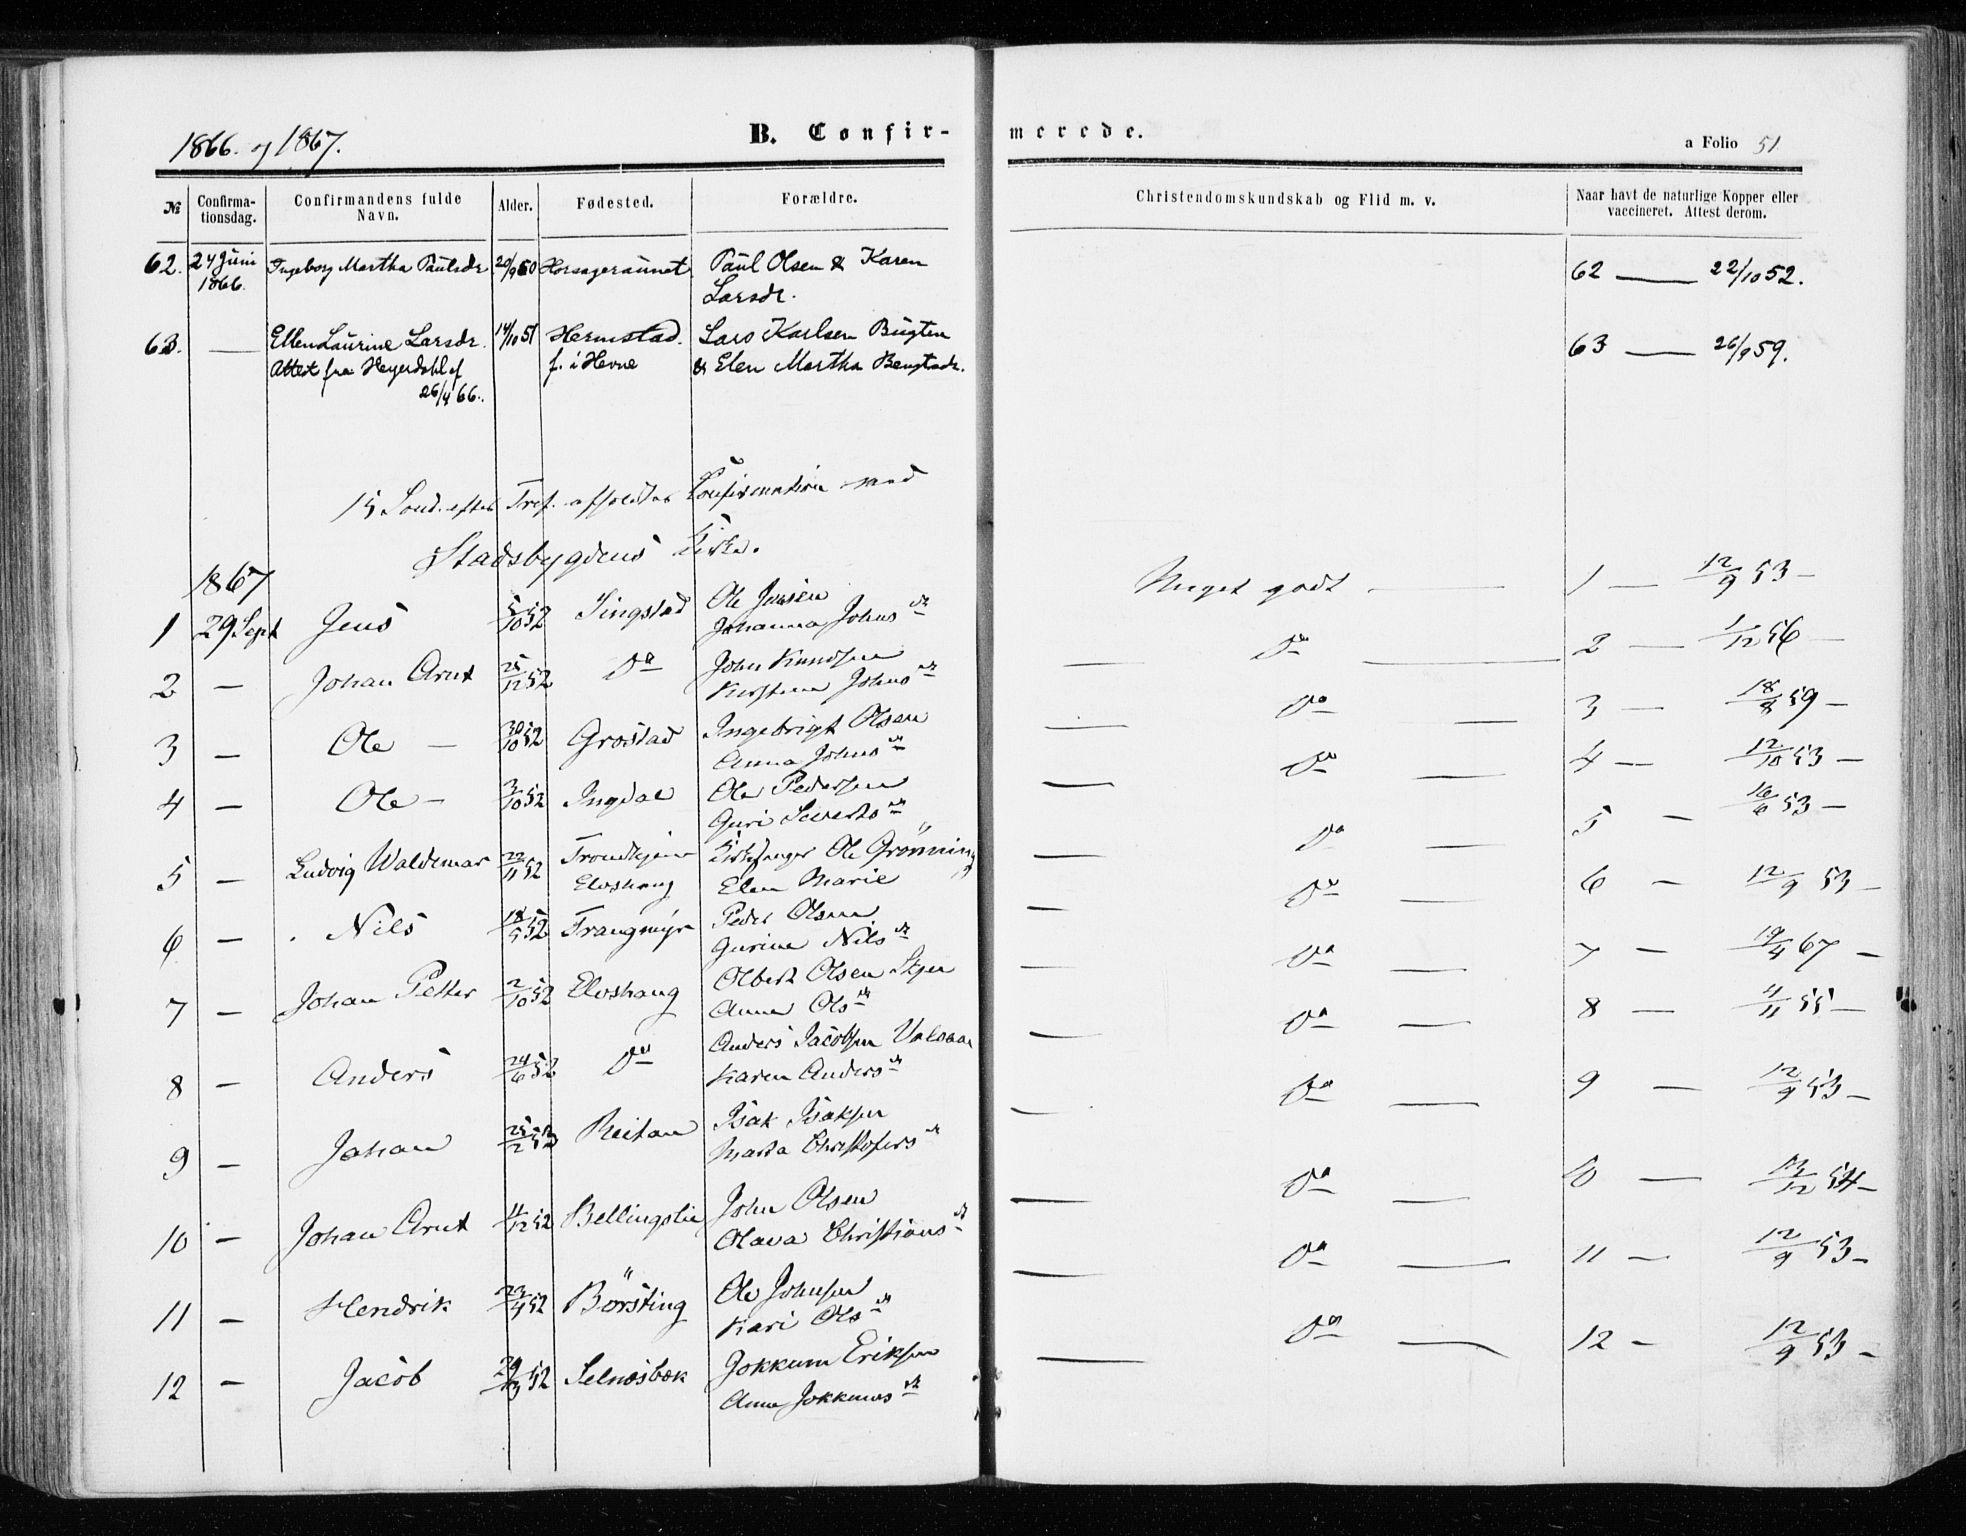 1866. og 1867.
B. Confirmerede.
a Folio 51
№ Confirmationsdag. Confirmandens fulde Navn. Alder. Fødested. Forældre. Christendomskundskab og Flid m. v. Naar havt de naturlige Kopper eller vaccineret. Attest derom.
62. 24 Juni 1866. Ingeborg Martha Paulsdr 20/9 50 Horsageraunet Paul Olsen & Karen Larsdr. 62 — 22/10 52.
63. — Ellen Laurine Larsdr. 14/10 51 Hermstad. Lars Karlsen Bugten 63 — 26/9 59.
Attest fra Heyerdahl af 26/4 66. f. i Hevne & Elen Martha Bengtsdr.
15 Sønd. efter Tref. afholdtes Confirmation ved
Stadsbygdens Kirke.
1867
1 29 Sept Jens 5/10 52 Tingstad Ole Jensen Johanna Johnsdr Meget godt — 1 — 12/9 53 —
2 — Johan Arnt 25/12 52 Do John Knudsen Kirstine Johnsdr — Do — 2 — 1/12 56 —
3 — Ole — 30/10 52 Grøstad Ingebrigt Olsen Anna Johnsdr — Do — 3 — 18/8 59 —
4 — Ole — 3/10 52 Ingdal Ole Pedersen Guri Sivertsdr — Do — 4 — 12/10 53 —
5 — Ludvig Waldemar 22/11 52 Trondhjem Elvshaug Kirkesanger Ole Grønning Elen Marie — Do 5 — 16/6 53 —
6 — Nils 18/5 52 Trangmyr Peder Olsen Gurine Nilsdr — Do — 6 — 12/9 53 —
7 — Johan Petter 2/10 52 Elvshaug Olbert Olsen Skjer Anne Olsdr — Do — 7 — 19/4 67 —
8 — Anders 24/6 52 Do Anders Jacobsen Karen Andersdr — Do — 8 — 4/11 55 —
9 — Johan 25/2 53 Reitan Isak Isaksen Marta Christofersdr — Do — 9 — 12/9 53 —
10 — Johan Arnt 11/12 52 Bellingslie John Olsen Olava Christiansdr — Do — 10 — 13/12 54 —
11 — Hendrik 23/4 52 Børsting Ole Johnsen Kari Olsdr — Do — 11 — 12/9 53 —
12 — Jacob 52 Selnesbæk Jokkum Eriksen Anne Jokkumsdr — Do — 12 — 12/9 53 —